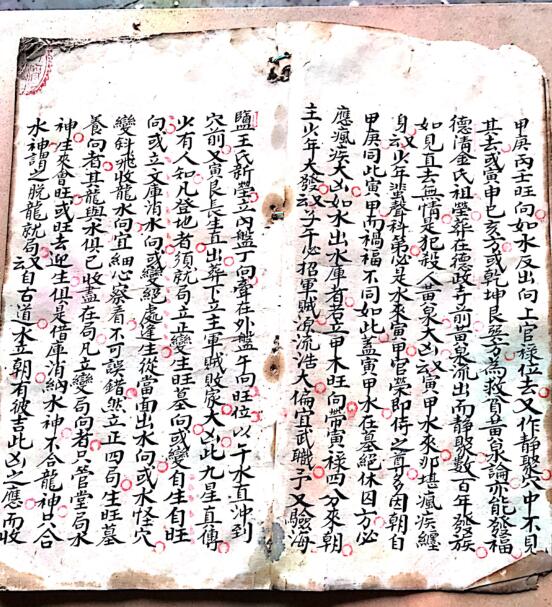 甲庚丙壬旺向如水反出向上官祿位去又作靜聚穴中不見
其去或寅申巳亥方或乾坤艮巽方為救貧黃泉論亦能發福
德清金氏祖塋葬在德政寺前黃泉流出而靜聚數百年發族
如見直去無情是犯殺人黃泉大凶云寅甲水來那堪瘋疾纏
身又少年蜚聲科第必是水來寅甲官榮即侍之首多因朝自
甲庚同此寅甲而禍福不同如此蓋寅甲水在墓絕休囚方必
應瘋疾大凶如水出水庫者若立甲木旺向帶寅祿四分來朝
主少年大發又云子午必招軍賊源流浩大偏宜武職予又驗海
鹽王氏新塋立內盤丁向聲在外盤午向旺位以午水直沖到
穴前又寅艮長生直出葬下立主軍賊敗家大凶此九星直傳
少有人知凡登地者須就局立正變生旺墓向或變自生自旺
向或立文庫消水向或變絕處逢生從當面出水向或水怪穴
變斜飛收龍水向宜細心察看不可誤錯然立正四局生旺墓
養向者其龍與水俱已收益在局凡立變局向者只管堂局水
神生來會旺或旺去迎生俱是借庫消納水神不合龍神只合
水神謂之脫龍就局云又自古道水立朝有彼吉此凶之應而收